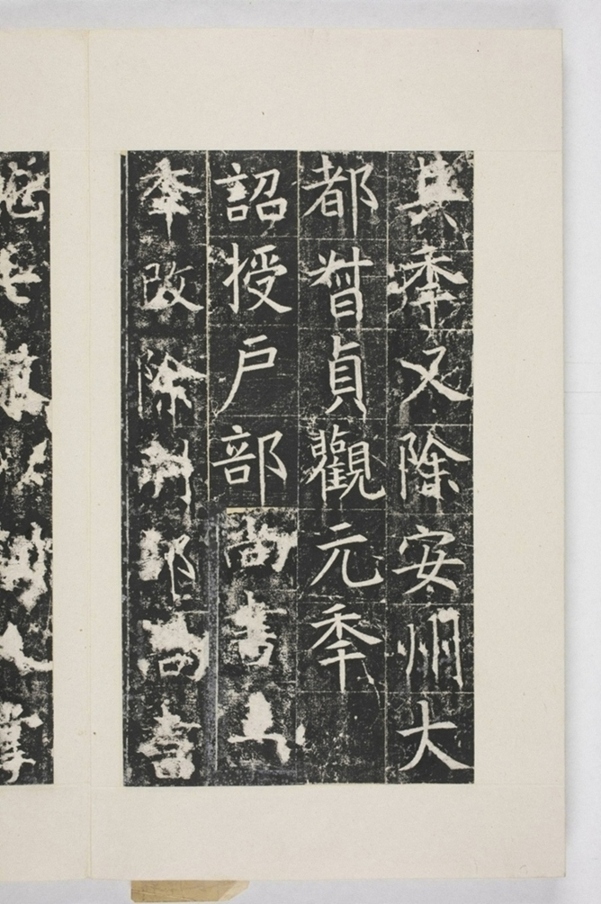 其秊又除安州大
都督貞觀元秊
詔授戶部尚書
秊改除刑部尚書